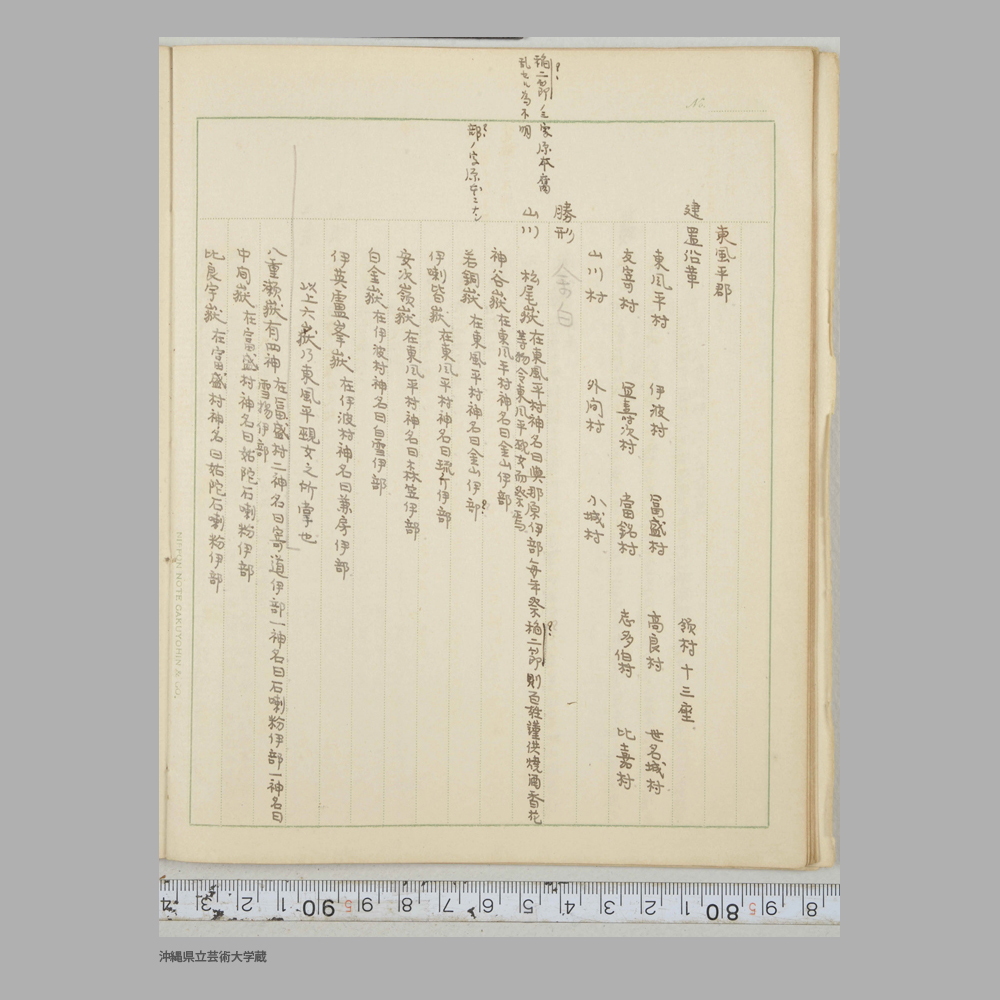 東風平郡
建置沿革
領村十三座
東風平村 伊波村 冨盛村 高良村 世名城村
友寄村 冝壽次村 當銘村 志多伯村 比嘉村
山川村 外間村 小城村
勝形
山川
稲二節ノ之家原本腐
乱セル為不明
松尾嶽 在東風平村神名曰與那原伊部毎年祭稲二節則百姓謹供焼酒香花
等物令東風平覡女而祭焉
神谷嶽 在東風平村神名曰金山伊部
若鋼嶽 在東風平村神名曰金山伊部
伊喇皆嶽 在東風平村神名曰
安次嶺嶽 在東風平村神名曰森笠伊部
白金嶽 在伊波村神名曰白雪伊部
伊英盧峯嶽 在伊波村神名曰兼房伊部
以上六嶽乃東風平覡女之所掌也
八重瀬嶽有四神 在冨盛村二神名曰寄道伊部一神名曰石喇粉伊部一神名曰
雪揚伊部
中間嶽 在富盛村神名曰姑陀石喇粉伊部
比良宇嶽 在富盛村神名曰姑陀石喇粉伊部
No.
NIPPON NOTE GAKUYOHIN & CO.
4 3 1 2 1 90 5 9 8 7 6 5 4 3 2 1 80 5 9 8
沖縄県立芸術大学蔵